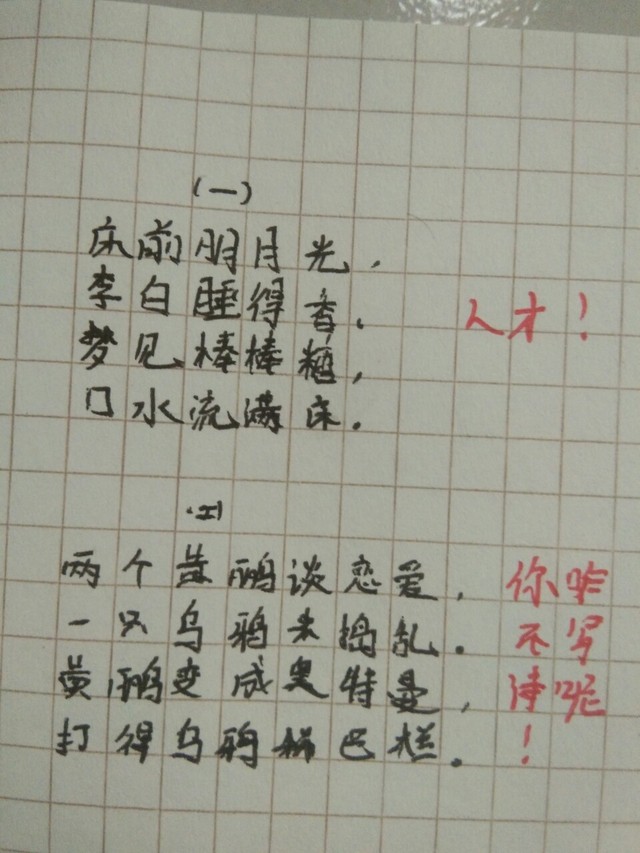 (一)
床前明月光,
李白睡得香.
人才!
梦见棒棒糖,
口水流满床.
(二)
两个黄鹂谈恋爱,
你咋
一只乌鸦去捣乱.
不写
黄鹂变成奥特曼,
诗呢
打得乌鸦稀巴烂.
!